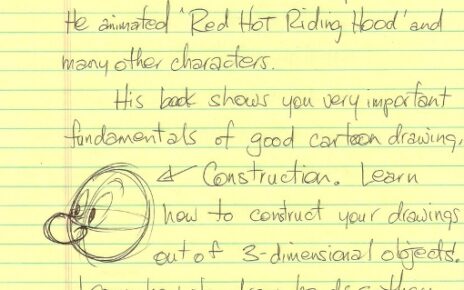 He animated 'Red Hot Riding Hood' and
many other characters.
His book shows you very important
fundamentals of good cartoon drawing.
Construction. Learn
how to construct your drawings
out of 3-dimensional objects.